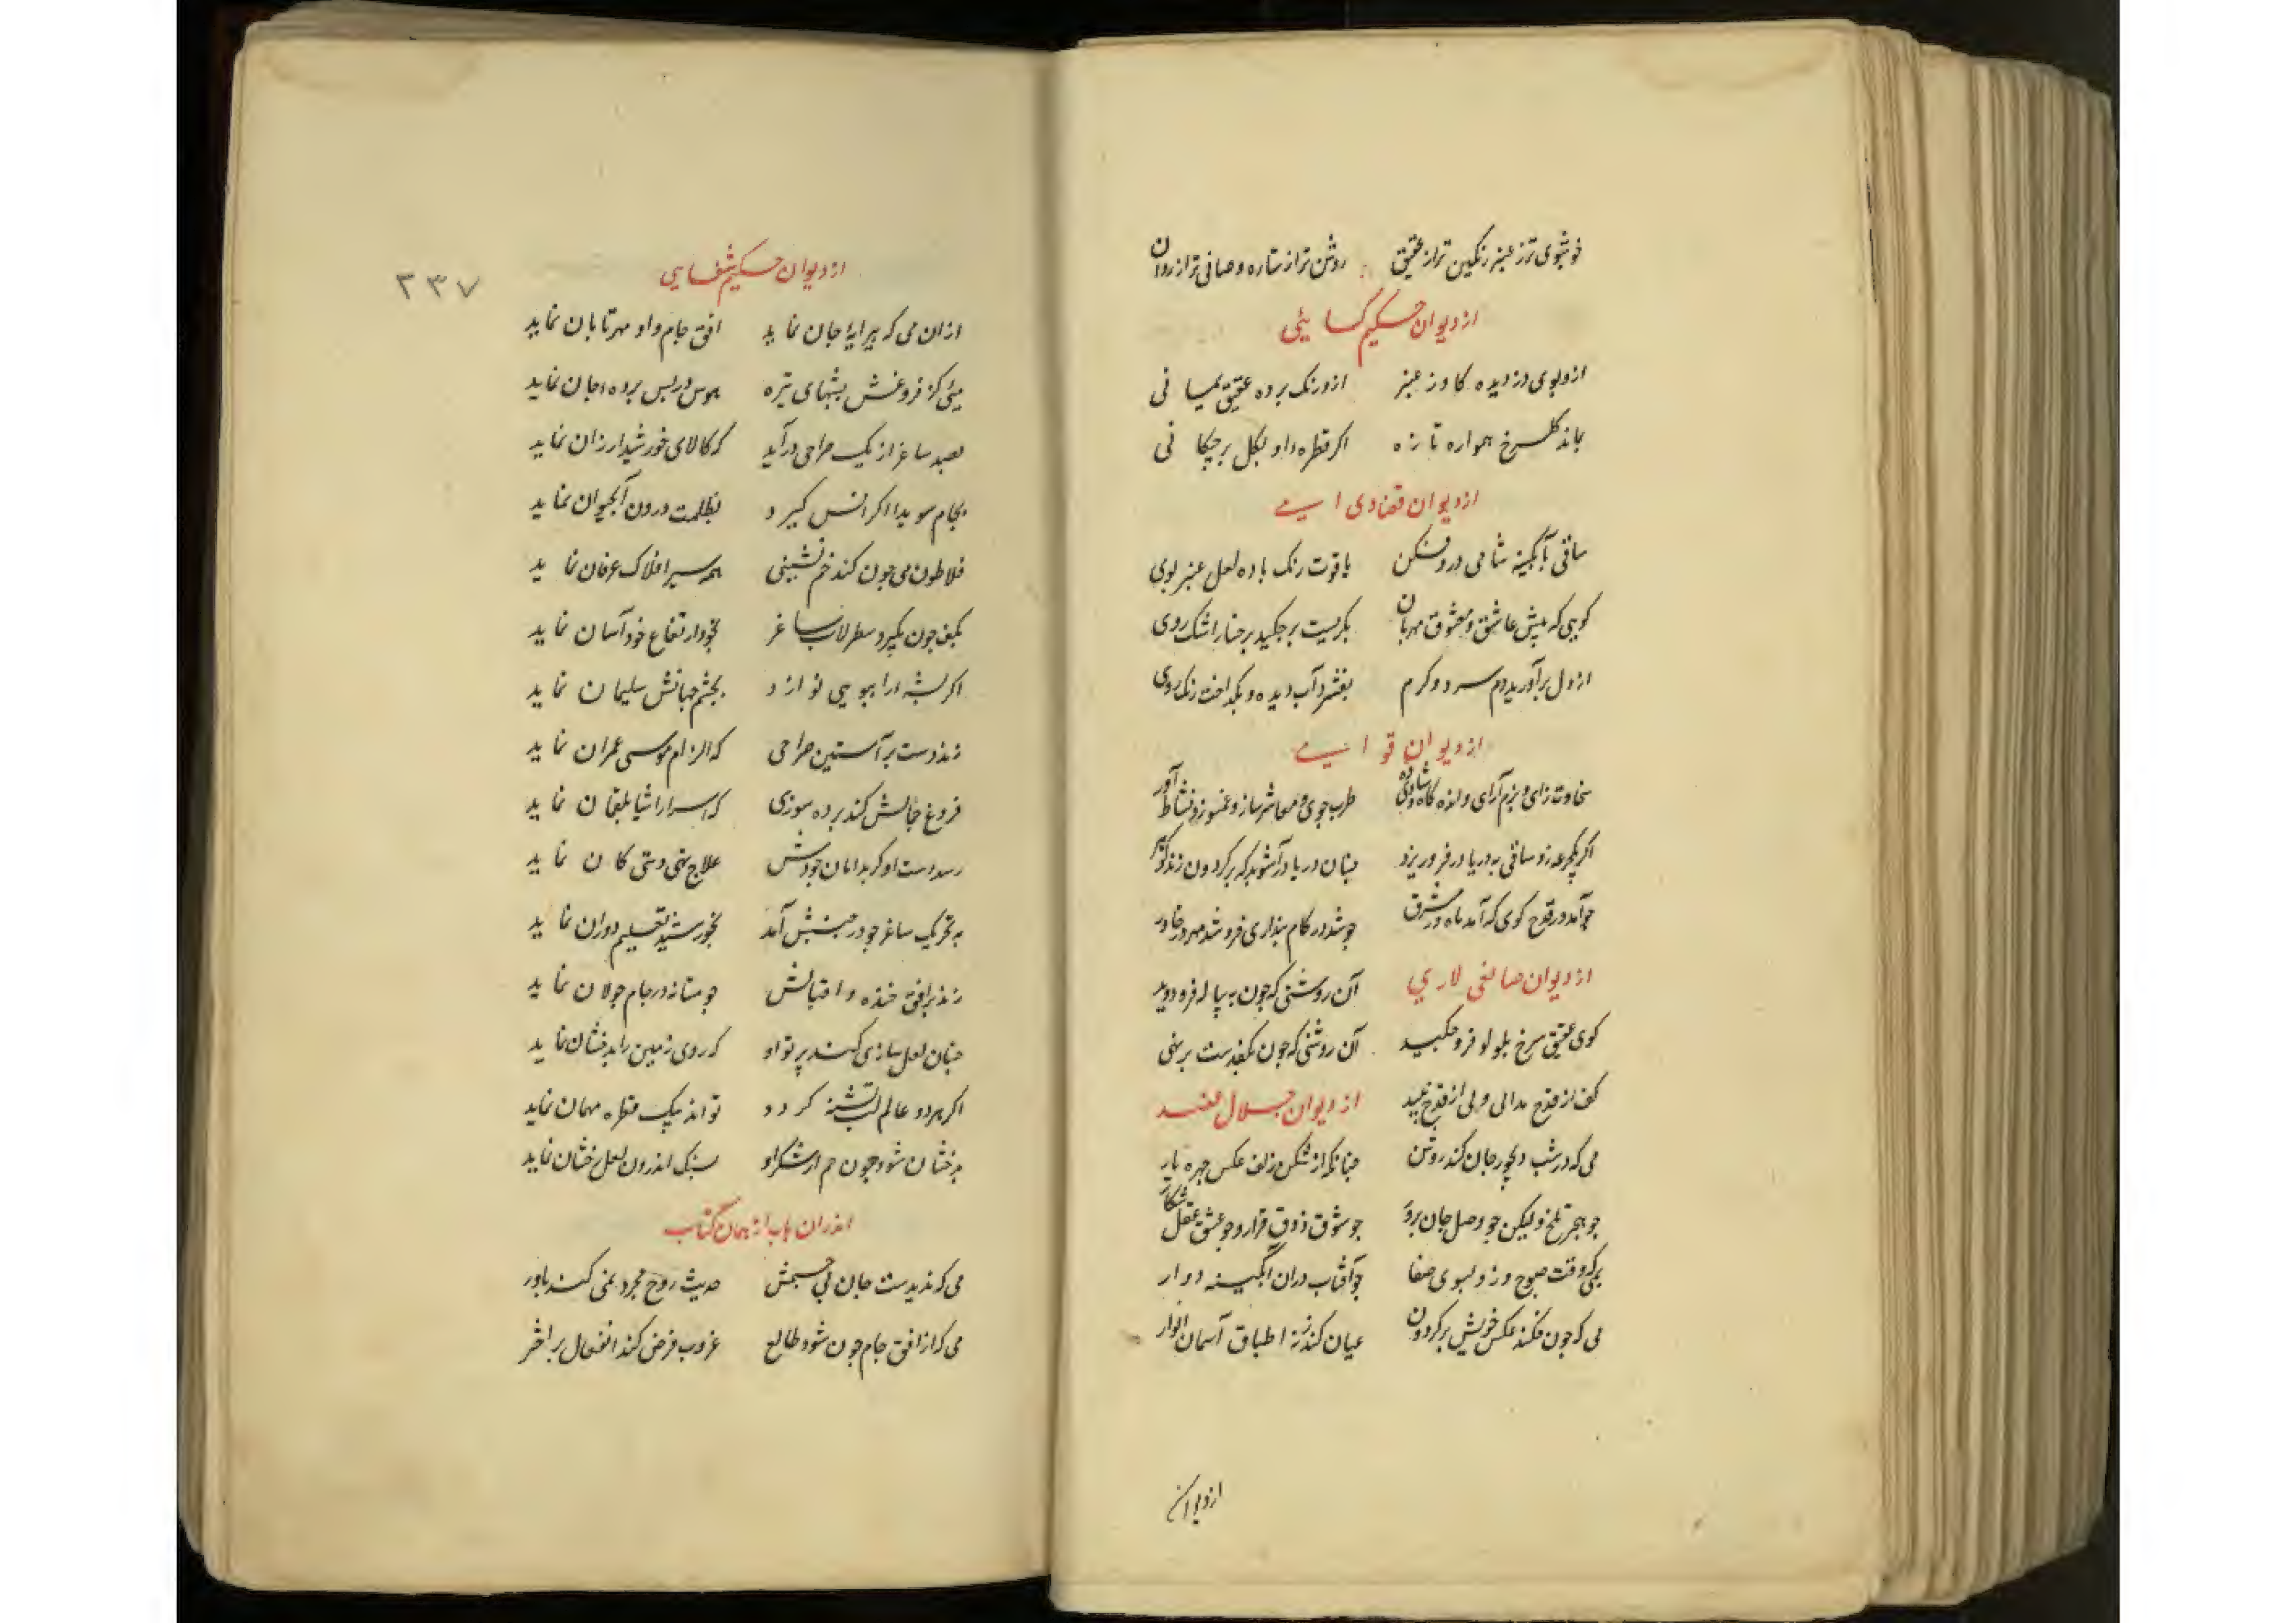 خوشبوی تر ز عنبر رنگین تر از عقیق روشن تر از ستاره و صافی تر از روان
از دیوان حکیم کسایئی
ازو بوی دزدیده کاوز عنبر ازو رنک برده عقیق یمیا نی
بماند کل سرخ همواره تا زه اکر قطره داو بکل بر چکا نی
از دیوان قضاری
ساقی آبکینه شامی در وفکن یاقوت رنک باده لعل عنبر بوی
کویی که پیش عاشق و معشوق مهربان بکریست بر چکید بر خسار اشک روی
از دل برآورید دم سرد و کرم بفشرد آب دیده و بکداخت رنک روی
از دیوان قو ا
سخاوت زای و بزم آرای و لذه کاه طرب جوی و معاشر ساز و نشاط آور
اکر یکجرعه زو ساقی به دریا در فرو ریزد چنان دریا در آشوبد که بر کردون زند
جو آمد در قدح کوی که آمد ماه در مشرق جو شد در کام پنداری فرو شد مهر در خاور
از دیوان صالحی لاری آن روشنی که جون به پیاله فرو دوید
کوی عقیق سرخ بلولو فرو جکید آن روشنی که جون بکف دست بر نهی
کف از قدح ندانی و نی از قدح نبید از دیوان جلال عضد
می که در شب دیجور جان کند روشن جنانکه از شکن زلف عکس جهره یار
جو هجر تلخ ولیکن جو وصل جان پرور جو شوق ذوق قرار و جو عشق عقل شکار
وقت صبوح و زو بسوی صفا جو آفتاب دران آبگینه دوار
می که جون فکند عکس خویش بر کردون عیان کند ز نه اطباق آسمان انوار
از دیوان
از دیوان حکیم شفایی
۲۳۷
ازان می که پیرایهٔ جان نماید افق جام و او مهر تابان نماید
میئی کز فروغش بشبهای تیره هوس در پس برده جان نماید
بصد ساغر از یک صراحی درآید که کالای خورشید ارزان نماید
بجام سویدا اکر انس کیرد بظلمت درون آبحیوان نماید
فلاطون می جون کند خم نشینی همه سیر افلاک عرفان نماید
بکف جون بکیرد سطرلاب ساغر بخود ارتفاع خود آسان نماید
اکر پشه را ببویی نوازد بجشم جهانش سلیمان نماید
زند دست بر آستین صراحی که الزام موسی عمران نماید
فروغ خیالش کند برده سوزی که اسرار اشیا بلقمان نماید
رسد دست او کر بدامان جودش علاج تهی دستی کان نماید
به تحریک ساغر جو در جنبش آمد بخورشید تعلیم دوران نماید
زند بر افق خنده واقبالش جو مستانه در جام جولان نماید
جنان لعل سازی کند پرتو او که روی زمین را بدخشان نماید
اکر هر دو عالم لب تشنه کردد تواند بیک قطره مهمان نماید
بدخشان شود جون خم از شکر او سنک اندرون لعل رخشان نماید
اندران باب از همان کتاب
می که ندیدست جان بی جسمش حدیث روح مجرد نمی کند باور
می که از افق جام جون شود طالع غروب فرض کند انفعال بر اختر